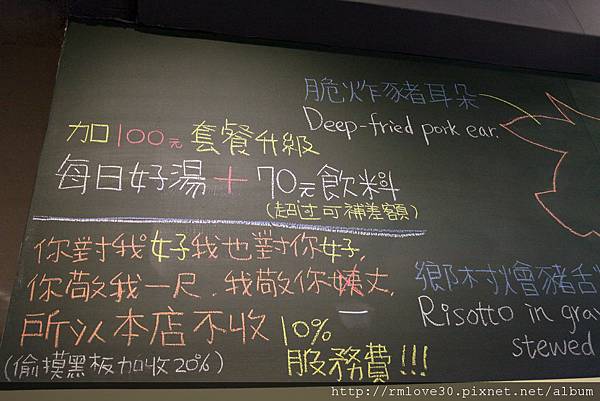 脆炸豬耳朵
Deep-fried pork ear.
加100元 套餐升級
每日好湯 + 70元飲料
(超过可補差額)
你對我好我也對你好,
你敬我一尺.我敬你一丈,
所以本店不收10%
服務費!!!
(偷摸黑板加收20%)
鄉村燴豬舌
Risotto in grav
stewed
http://rmlove30.pixnet.net/album